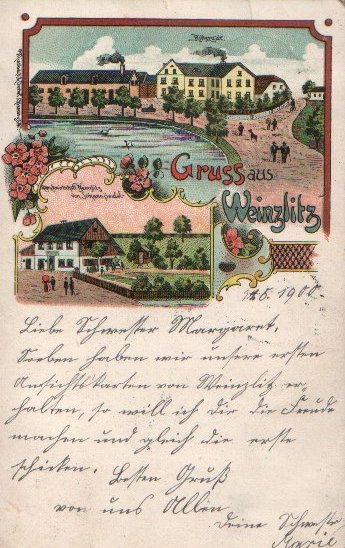 Gruss aus
Weinzlitz
18. 1900
Liebe Schwester Margaret,
Soeben haben wir unsere ersten
Ansichtskarten von Weinzlitz er-
halten, so will ich dir die Freude
machen und gleich die erste
schicken. Besten Gruß
von uns Allen
Deine Schwester
Marie